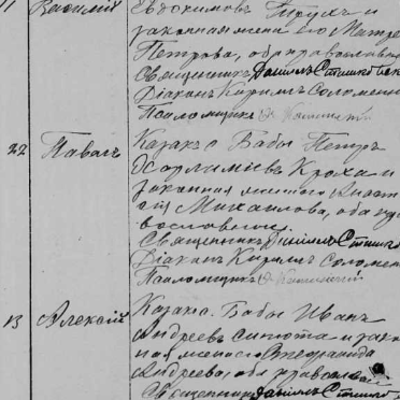 11 Василій
Евдокимовъ Трухъ и
законная жена его Матре
Петрова, оба православн
Священникъ Даниилъ Сташко
Діаконъ Кириллъ Соломе
Псаломщикъ
22 Павелъ
Казакъ с Бабы Петръ
Харлампіевъ Кроха и
законная жена его Анаст
сія Михаилова, оба пра
вославные.
Священникъ Даниилъ Сташко
Діаконъ Кириллъ Соломен
Псаломщикъ
13 Алексій
Казакъ с. Бабы Иванъ
Андреевъ Синюта и закон
ная жена его
Андреева, оба православ
Священникъ Даниилъ Сташко